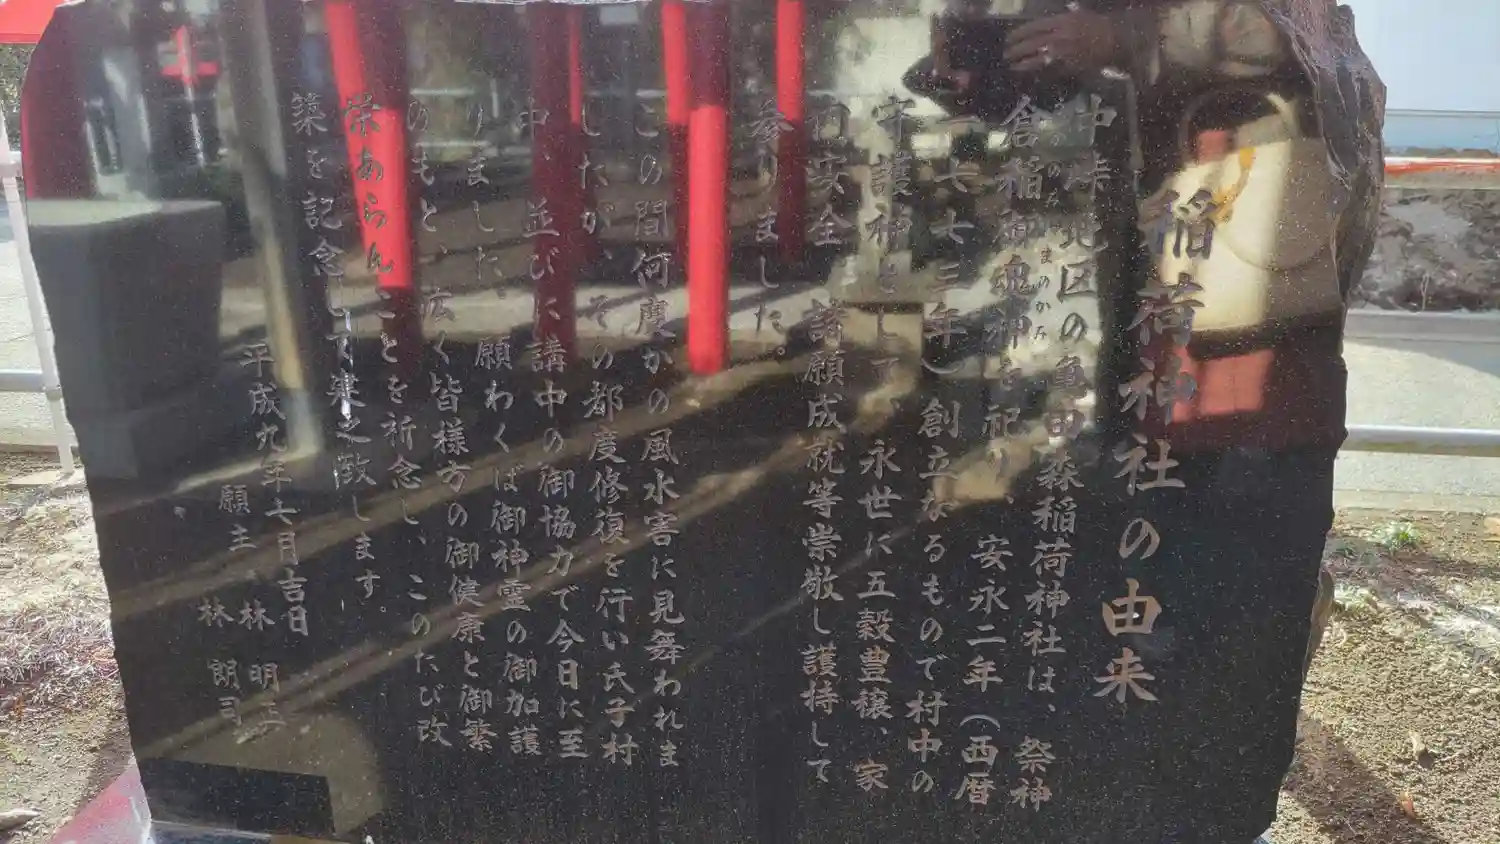 稲荷神社の由来
中峠地区の亀田森稲荷神社は、祭神
倉稲御魂神を祀り、安永二年（西暦
まのかみ
一七七三年）創立なるもので村中の
守護神として、永世に五穀豊穣、家
内安全、諸願成就等崇敬し護持して
参りました。
この間何度かの風水害に見舞われま
したが、その都度修復を行い氏子村
中、並びに講中の御協力で今日に至
りました。願わくば御神霊の御加護
のもと、広く皆様方の御健康と御繁
栄あらんことを祈念し、このたび改
築を記念して建之致します。
平成九年七月吉日
願主 林 明三
林 朗司